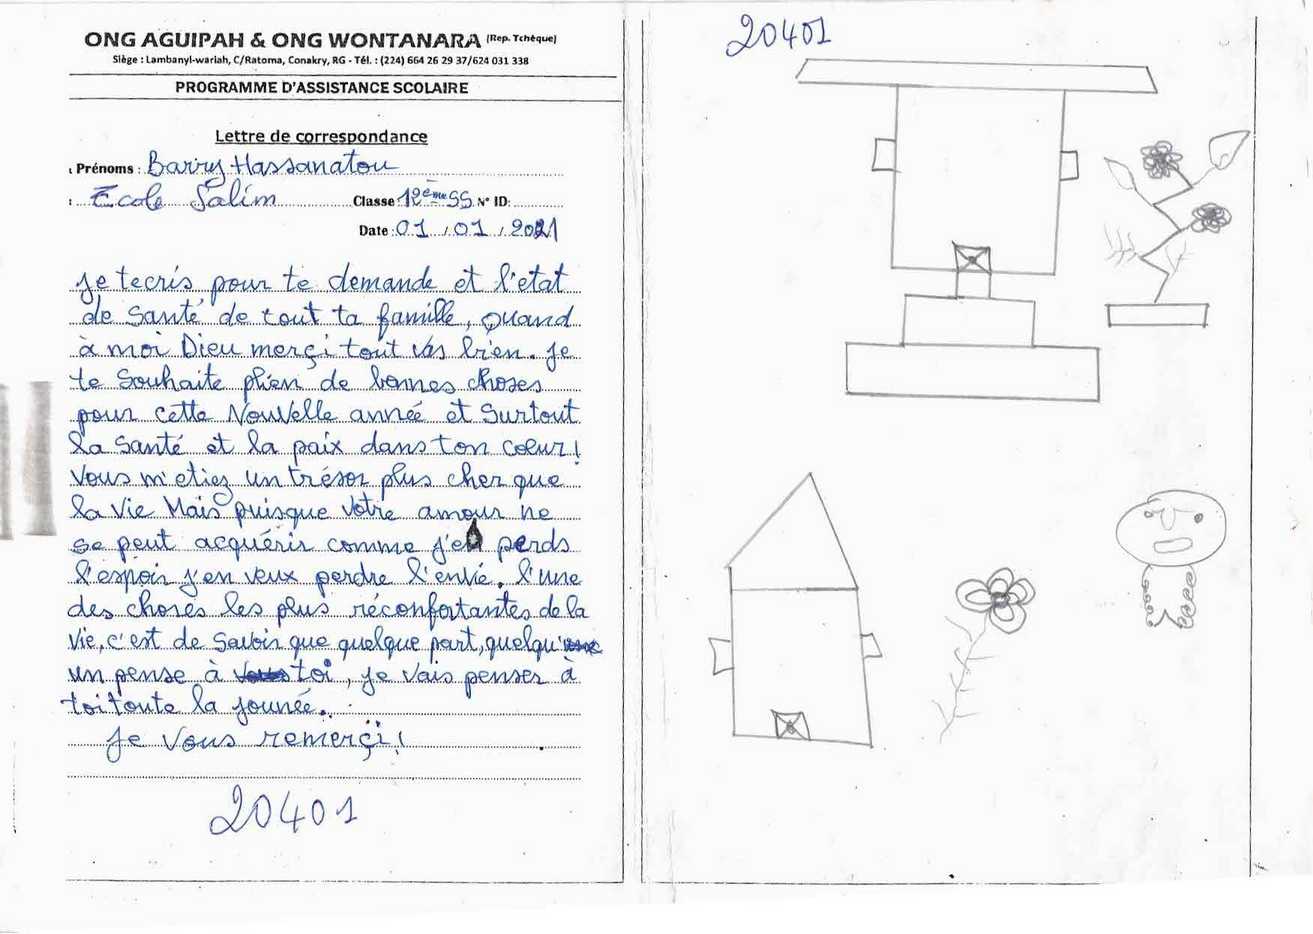 ONG AGUIPAH & ONG WONTANARA (Rep. Tchèque)
Siège : Lambanyl-wariah, C/Ratoma, Conakry, RG - Tél. : (224) 664 26 29 37/624 031 338
PROGRAMME D'ASSISTANCE SCOLAIRE
Lettre de correspondance
Prénoms : Barry Hassanatou
: Ecole Salim Classe 12ème SS N° ID:
Date : 01 / 01 / 2021
Je tecris pour te demande et l'etat
de Santé de tout ta famille, Quand
à moi Dieu merçi tout vas bien. Je
te Souhaite plien de bonnes choses
pour cette Nouvelle année et Surtout
la Santé et la paix dans ton coeur!
Vous m'etiez un trésor plus cher que
la vie Mais puisque votre amour ne
se peut acquérir comme j'en perds
l'espoir j'en veux perdre l'envie. l'une
des choses les plus réconfortantes de la
vie, c'est de Savoir que quelque part, quelqu'
un pense à toi, Je vais penser à
toi toute la jounée.
Je vous remerçi!
20401
20401